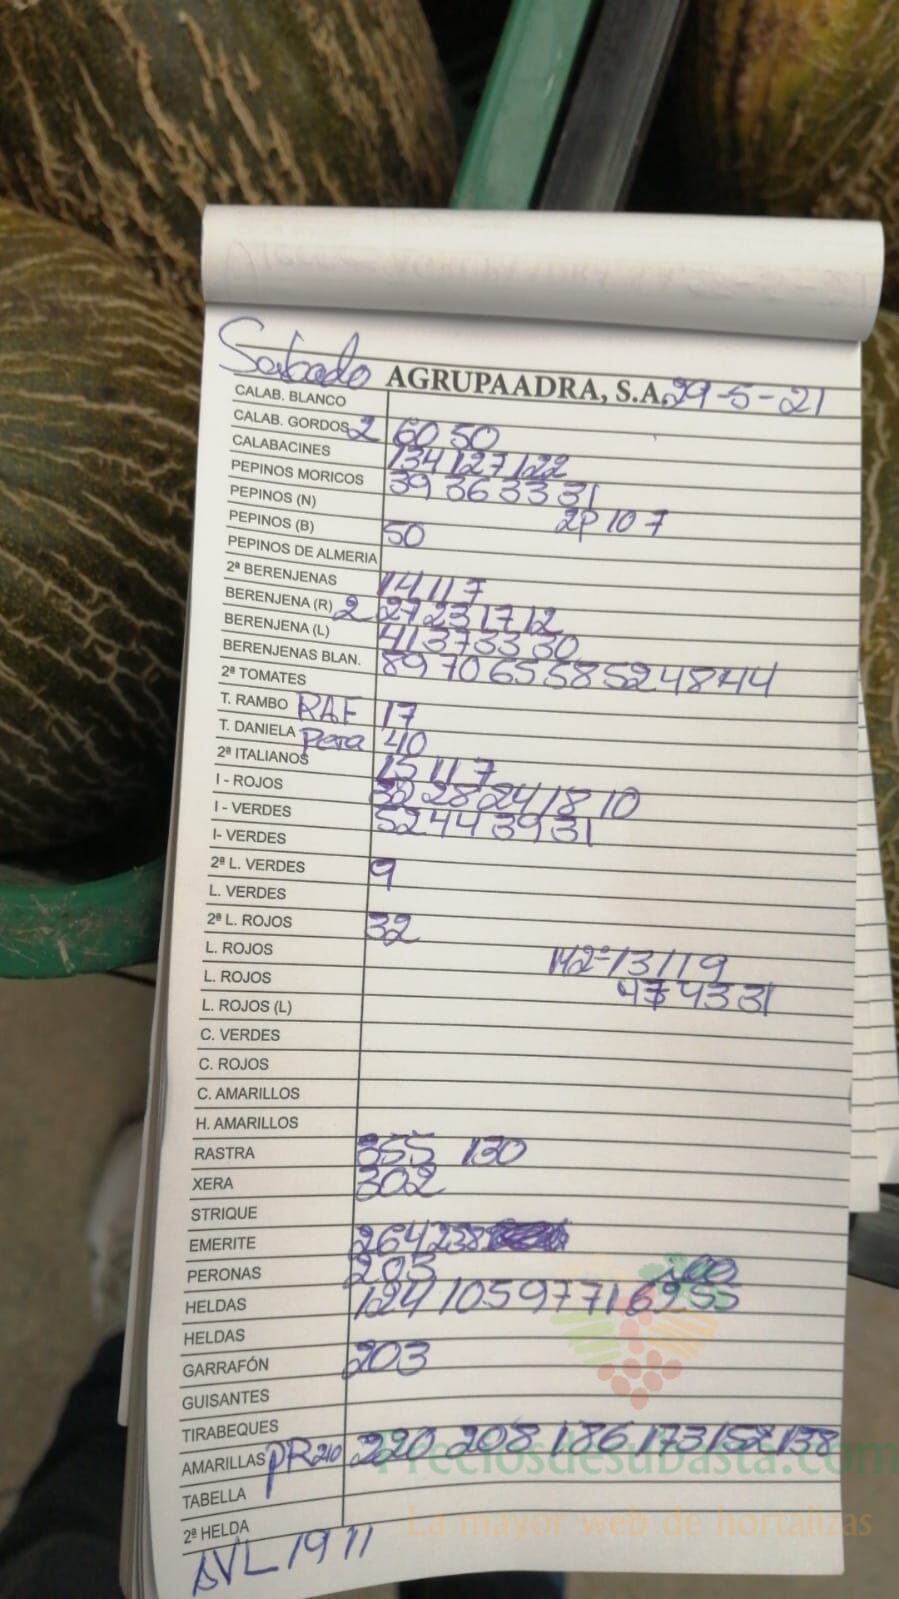 Sabado AGRUPAADRA, S.A. 29-5-21
CALAB. BLANCO
CALAB. GORDOS 2 60 50
CALABACINES 134 127 122
PEPINOS MORICOS 39 36 33 31
PEPINOS (N) 2P 10 7
PEPINOS (B) 50
PEPINOS DE ALMERIA
2ª BERENJENAS 14 11 7
BERENJENA (R) 2 27 23 17 12
BERENJENA (L) 41 37 33 30
BERENJENAS BLAN. 89 70 65 58 52 48 44
2ª TOMATES
T. RAMBO RAF 17
T. DANIELA Pera 40
2ª ITALIANOS 15 11 7
I - ROJOS 32 28 24 18 10
I - VERDES 52 44 39 31
I- VERDES
2ª L. VERDES 9
L. VERDES
2ª L. ROJOS 32
L. ROJOS 13 11 9
L. ROJOS 47 43 31
L. ROJOS (L)
C. VERDES
C. ROJOS
C. AMARILLOS
H. AMARILLOS
RASTRA 355 130
XERA 302
STRIQUE
EMERITE 264 238
PERONAS 203
HELDAS 124 105 97 71 62 55
HELDAS
GARRAFÓN 203
GUISANTES
TIRABEQUES
AMARILLAS PR 210 220 208 186 173 158 138
TABELLA
2ª HELDA
AVL 19 11
Preciosdesubasta.com
La mayor web de hortalizas